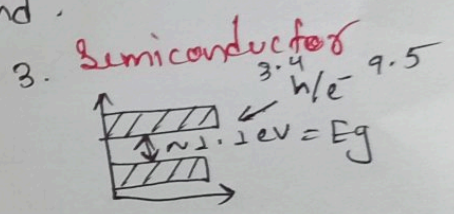 nd.
3. Semiconductor
3.4 9.5
h/e⁻
~1.1ev = Eg